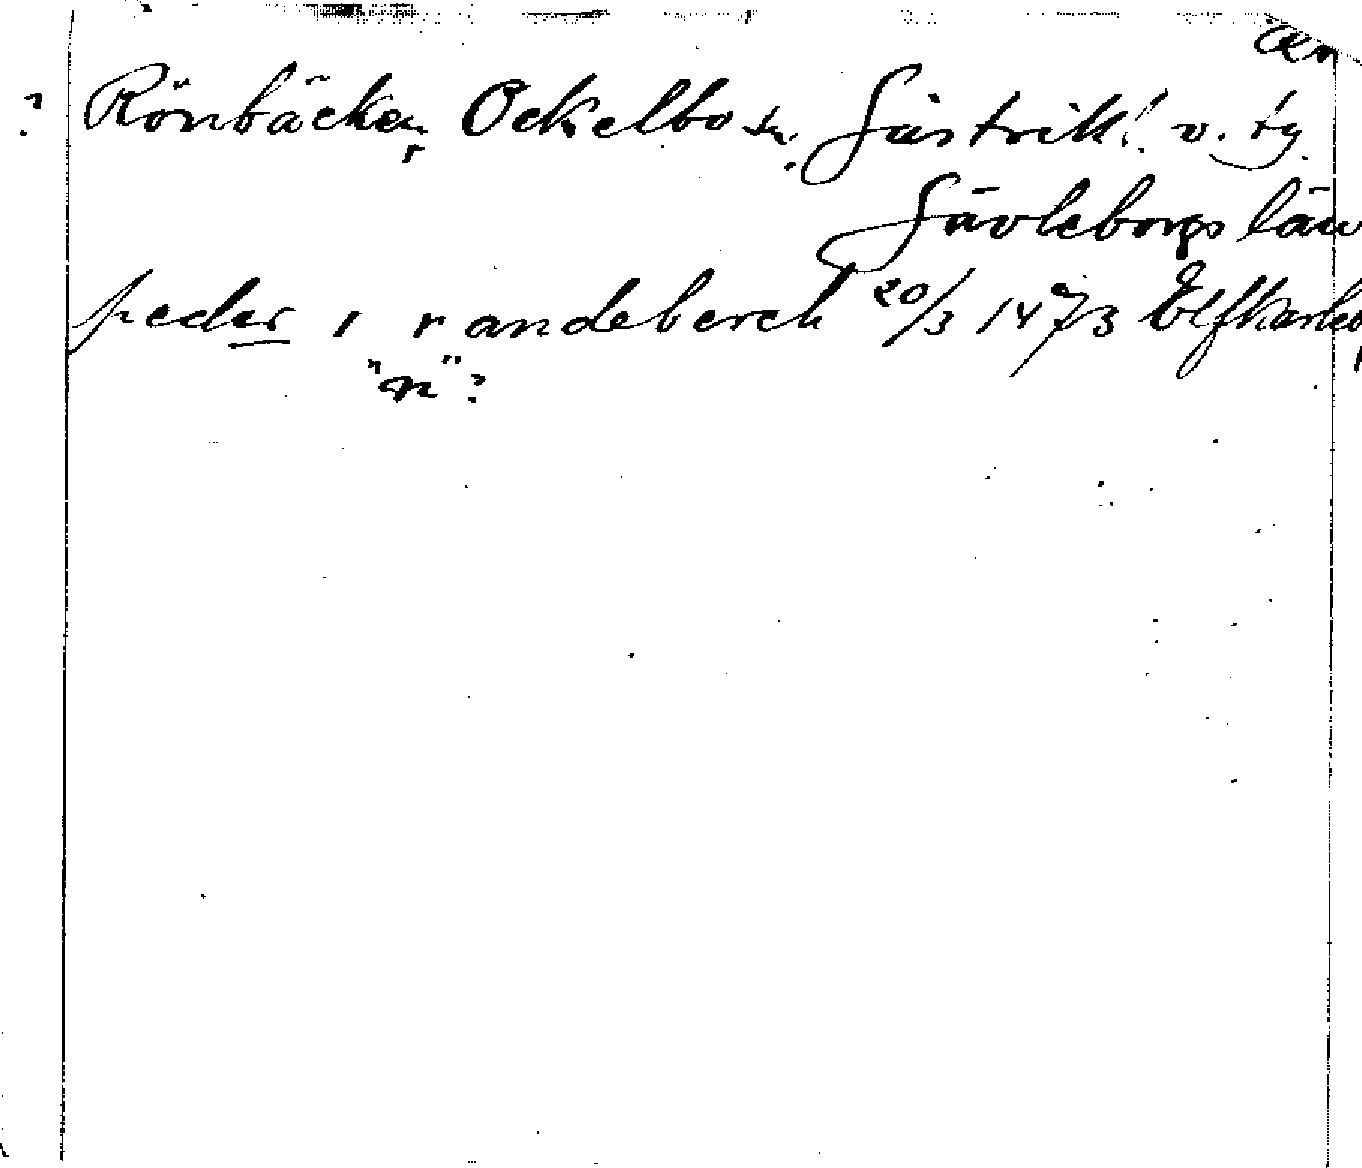 än
? Rönbäcken, Ockelbo sn. Gästrikl. v. tg
r
Gävleborgs län
peder i randeberch 20/3 1473 Elfkarleö,
"n"?